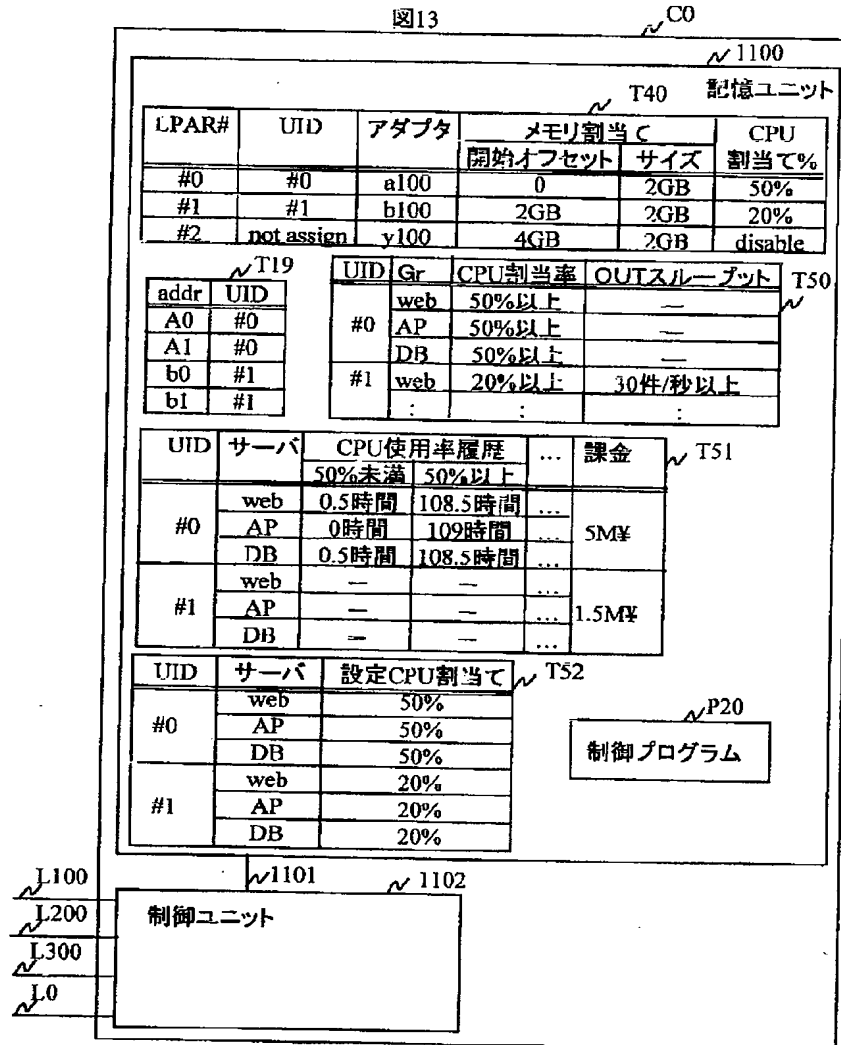 図13
C0
1100
T40 記憶ユニット
LPAR# UID アダプタ メモリ割当て CPU
開始オフセット サイズ 割当て%
#0 #0 a100 0 2GB 50%
#1 #1 b100 2GB 2GB 20%
#2 not assign y100 4GB 2GB disable
T19
addr UID
A0 #0
A1 #0
b0 #1
b1 #1
UID Gr CPU割当率 OUTスループット T50
web 50%以上 —
#0 AP 50%以上 —
DB 50%以上 —
#1 web 20%以上 30件/秒以上
: : :
UID サーバ CPU使用率履歴 ... 課金 T51
50%未満 50%以上
web 0.5時間 108.5時間 ...
#0 AP 0時間 109時間 ... 5M¥
DB 0.5時間 108.5時間 ...
web — — ...
#1 AP — — ... 1.5M¥
DB — — ...
UID サーバ 設定CPU割当て T52
web 50%
#0 AP 50%
DB 50%
web 20%
#1 AP 20%
DB 20%
P20
制御プログラム
1101
1102
L100
L200
L300
L0
制御ユニット